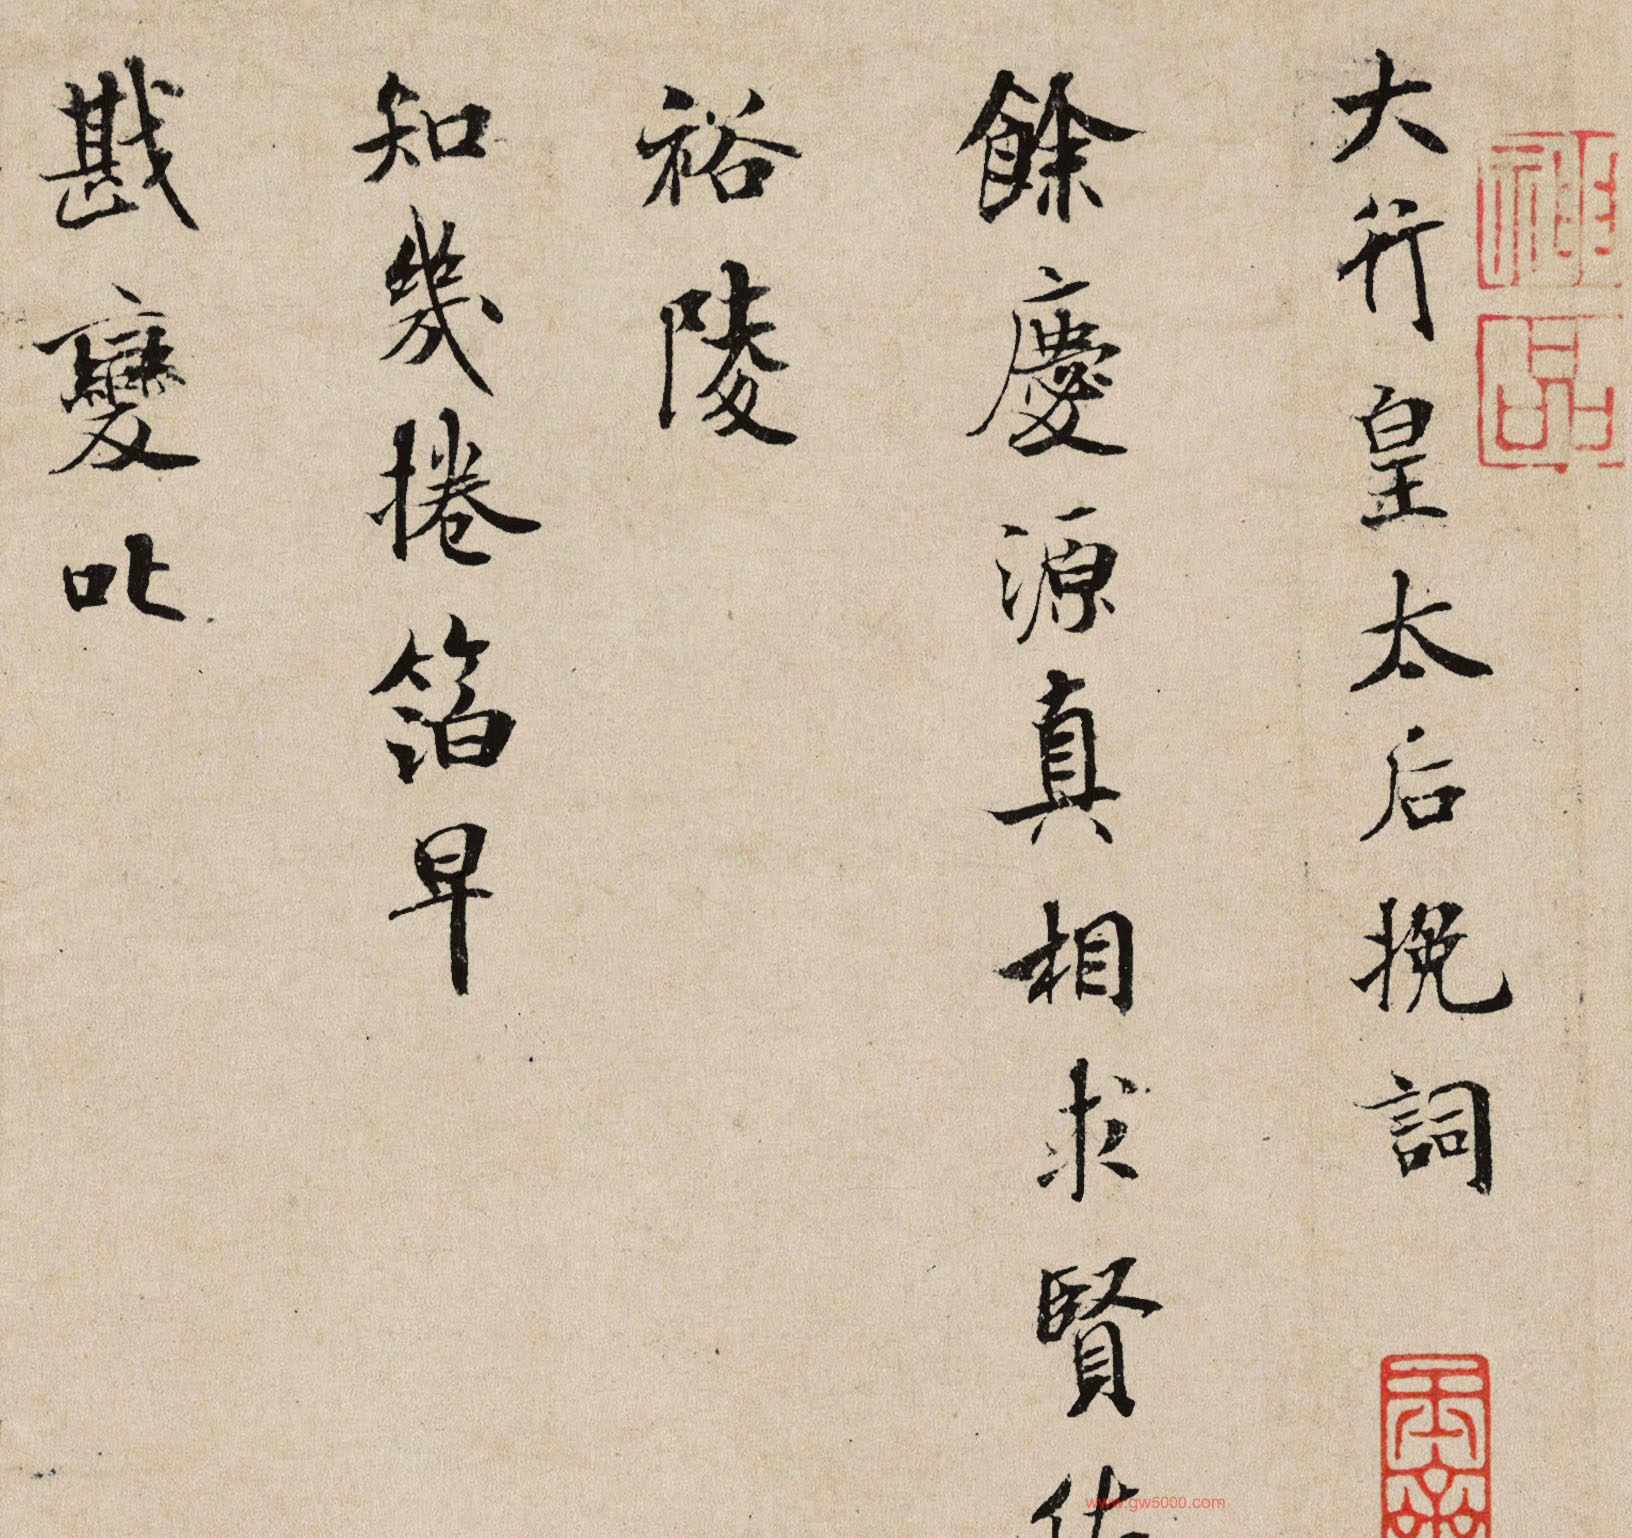 神品
大行皇太后挽詞
餘慶源真相求賢佐
裕陵
知幾捲箔早
戡變叱
www.gw5000.com